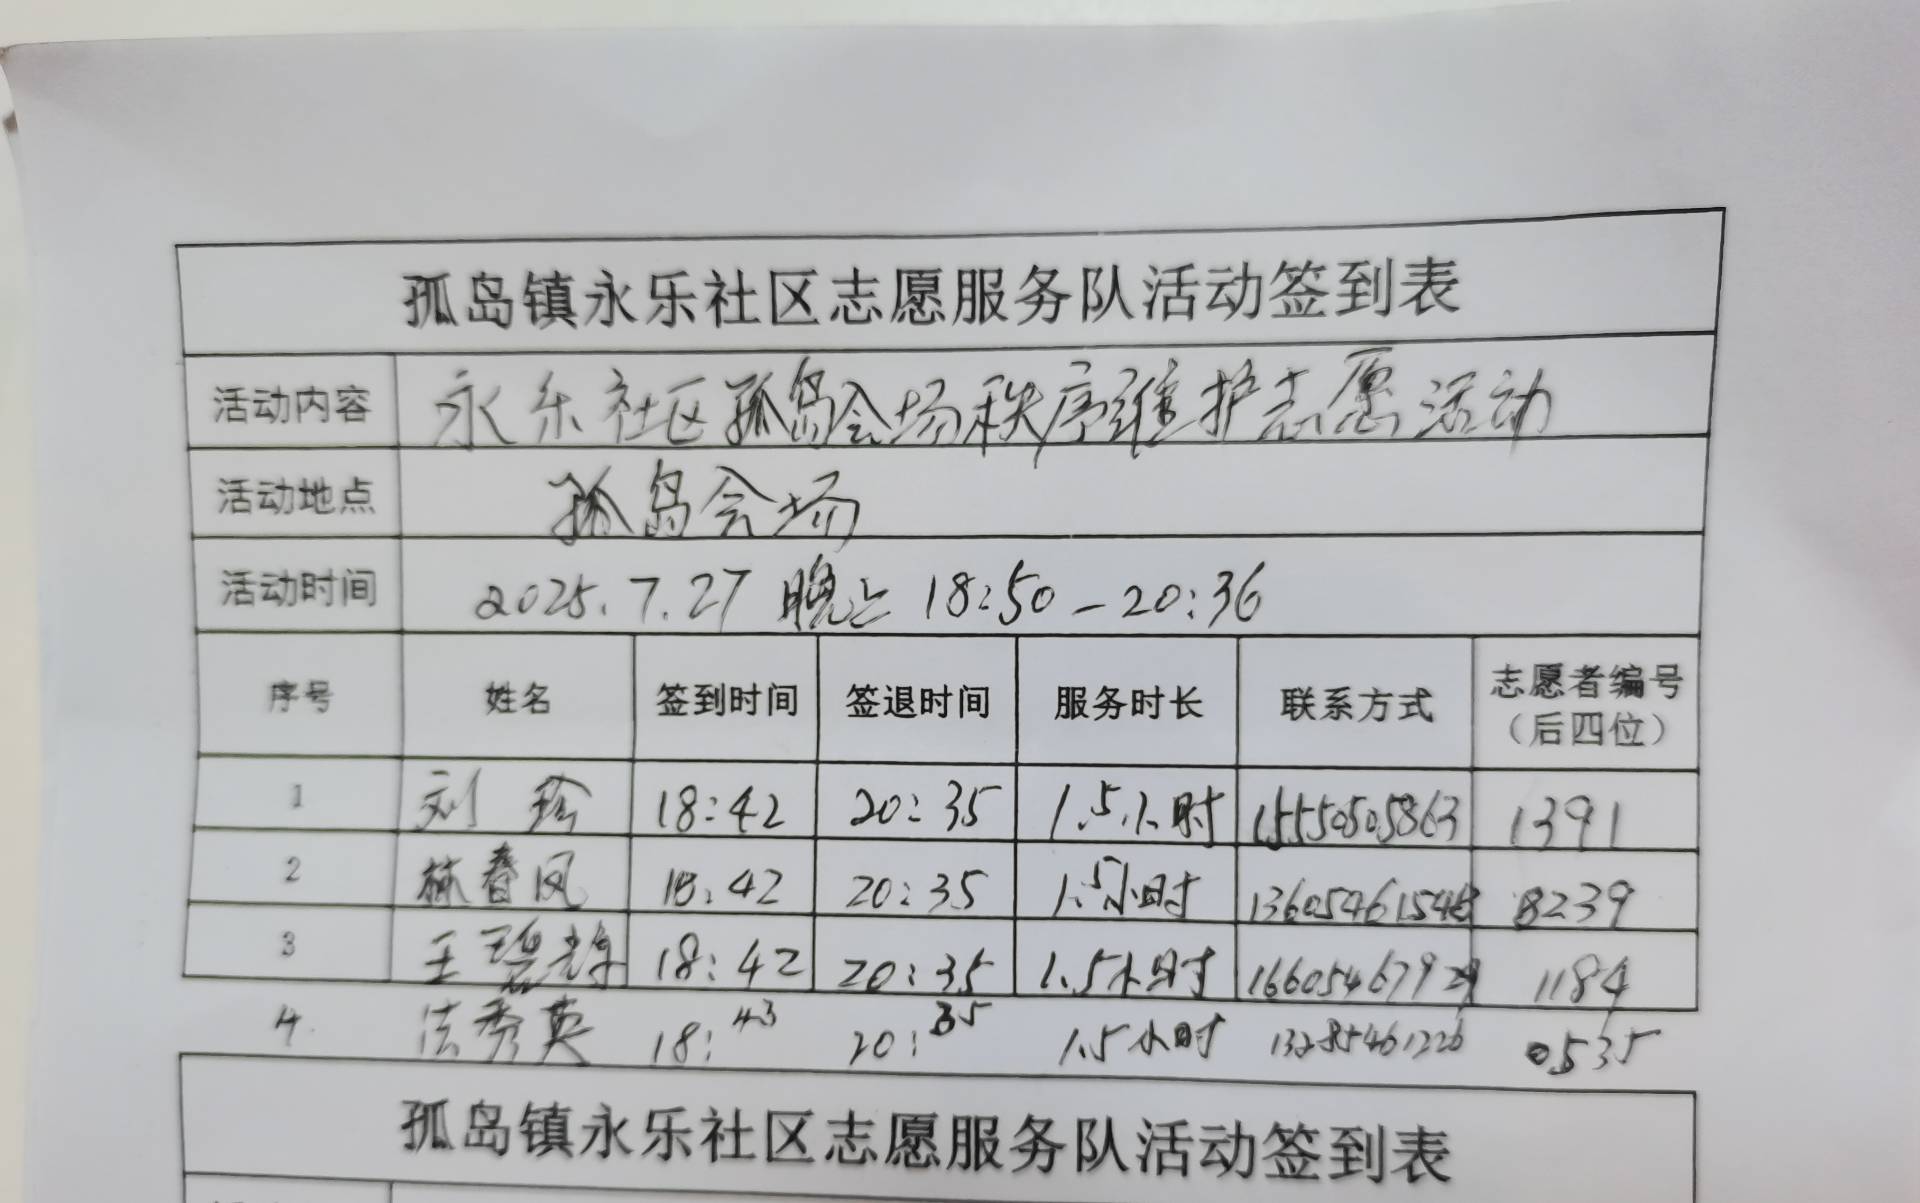 孤岛镇永乐社区志愿服务队活动签到表
活动内容 永乐社区孤岛会场秩序维护志愿活动
活动地点 孤岛会场
活动时间 2025.7.27 晚上 18:50-20:36
序号 姓名 签到时间 签退时间 服务时长 联系方式 志愿者编号（后四位）
1 刘珍 18:42 20:35 1.5小时 15550505863 1391
2 林春凤 18:42 20:35 1.5小时 8239
3 王碧 18:42 20:35 1.5小时 1184
4 法秀英 18:43 20:35 1.5小时 13285461226 0535
孤岛镇永乐社区志愿服务队活动签到表